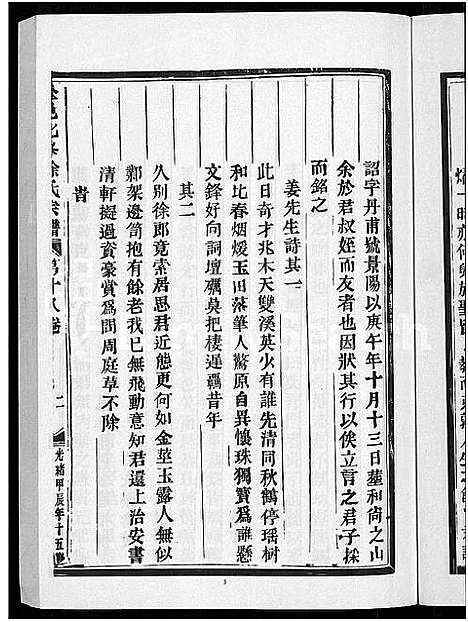 詔字丹甫號景陽以庚午年十月十三日塟和尚之山
余於君叔姪而友者也因狀其行以俟立言之君子採
而銘之
姜先生詩其一
此日奇才兆木天雙溪英少有誰先清同秋鶴停瑶樹
和比春烟煖玉田落筆人驚原自異懷珠獨寶爲誰懸
文鋒好向詞壇礪莫把棲遲羈昔年
其二
久別徐郎竟索居思君近態更何如金莖玉露人無似
鄴架邊笥抱有餘老我已無飛動意知君還上治安書
清軒擬過資豪賞爲問周庭草不除
徐氏宗譜
第十八卷
二
光緒甲辰年十五修